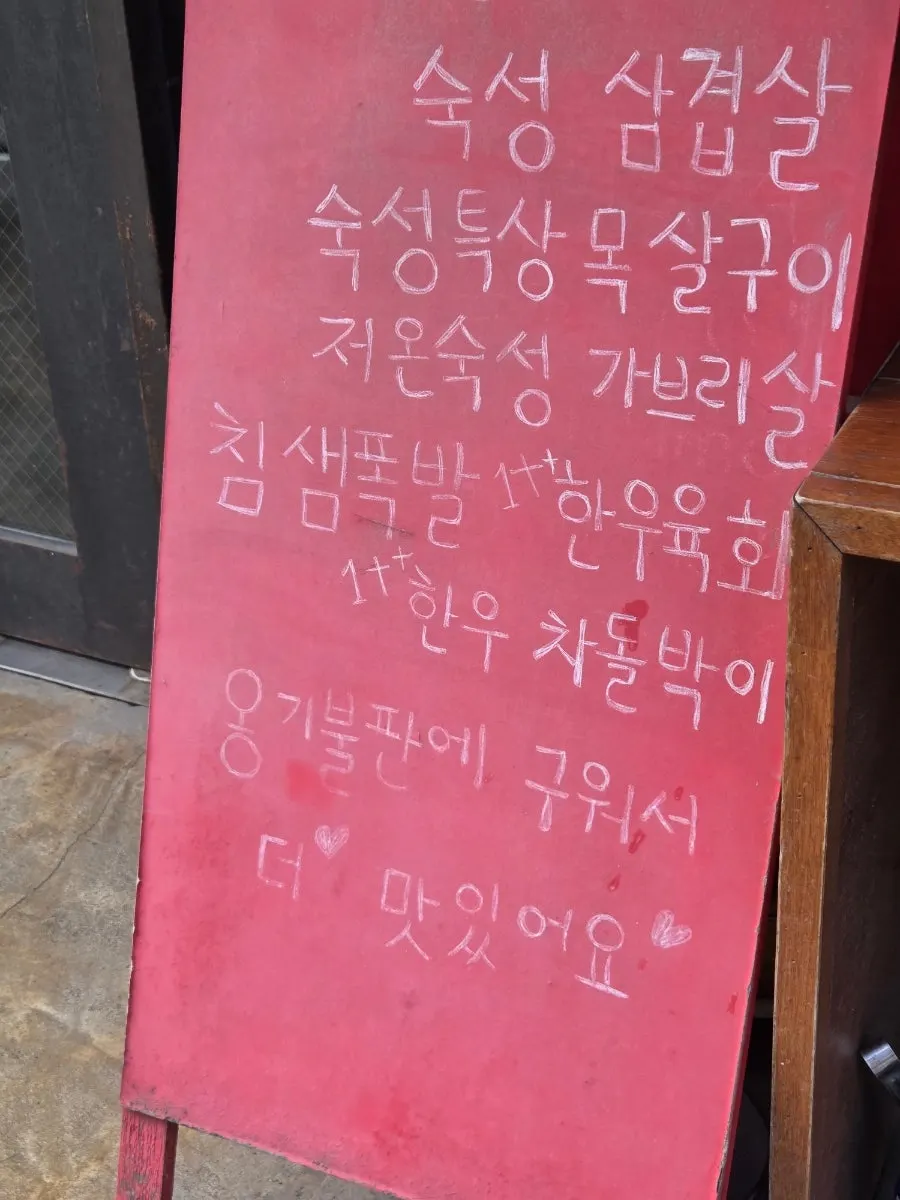 숙성 삼겹살
숙성특상목살구이
저온숙성 가브리살
침샘폭발 1++한우육회
1++한우 차돌박이
옹기불판에 구워서
더♥ 맛있어요♥